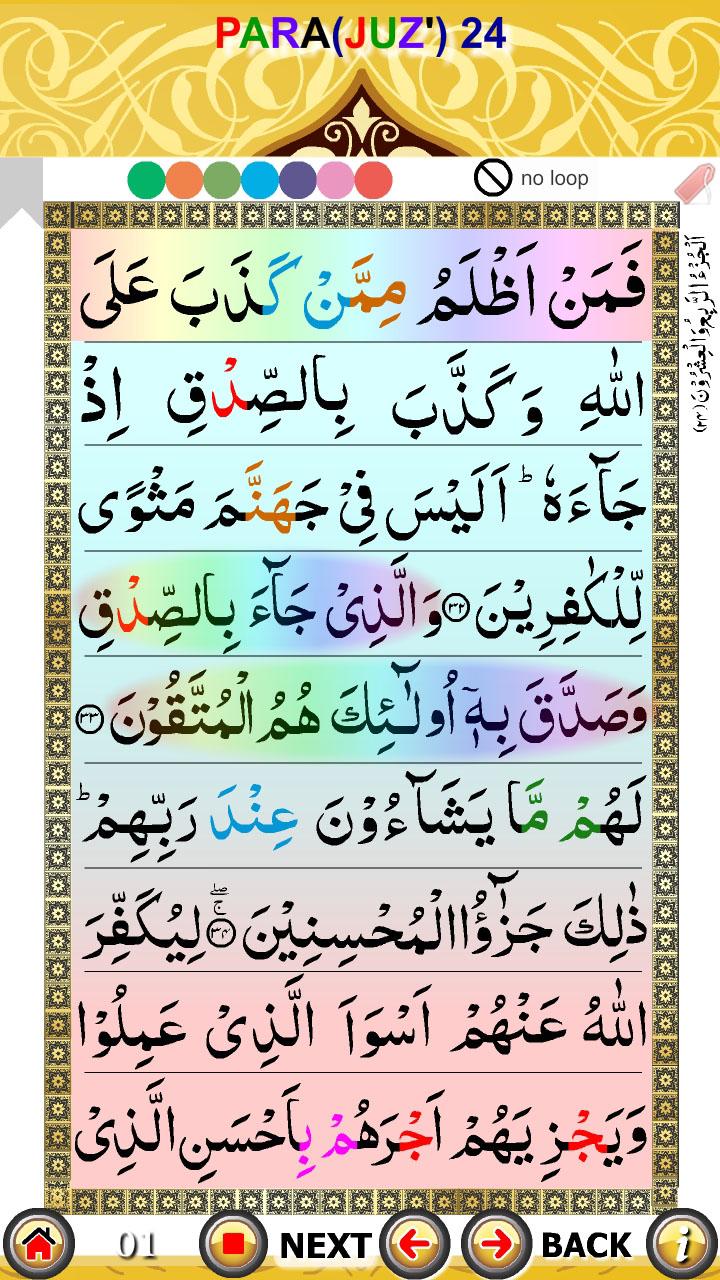 PARA(JUZ') 24
no loop
اَلْجُزْءُ الرَّابِعُ وَالْعِشْرُوْنَ (۲۴)
فَمَنْ اَظْلَمُ مِمَّنْ كَذَبَ عَلَى
اللّٰهِ وَ كَذَّبَ بِالصِّدْقِ اِذْ
جَآءَهٗ ؕ اَلَيْسَ فِىْ جَهَنَّمَ مَثْوًى
لِّلْكٰفِرِيْنَ ﴿۳۲﴾ وَالَّذِىْ جَآءَ بِالصِّدْقِ
وَصَدَّقَ بِهٖٓ اُولٰٓئِكَ هُمُ الْمُتَّقُوْنَ ﴿۳۳﴾
لَهُمْ مَّا يَشَآءُوْنَ عِنْدَ رَبِّهِمْ ؕ
ذٰلِكَ جَزٰٓؤُا الْمُحْسِنِيْنَ ﴿۳۴﴾ ۚۖ لِيُكَفِّرَ
اللّٰهُ عَنْهُمْ اَسْوَاَ الَّذِىْ عَمِلُوْا
وَيَجْزِيَهُمْ اَجْرَهُمْ بِاَحْسَنِ الَّذِىْ
01 NEXT BACK i